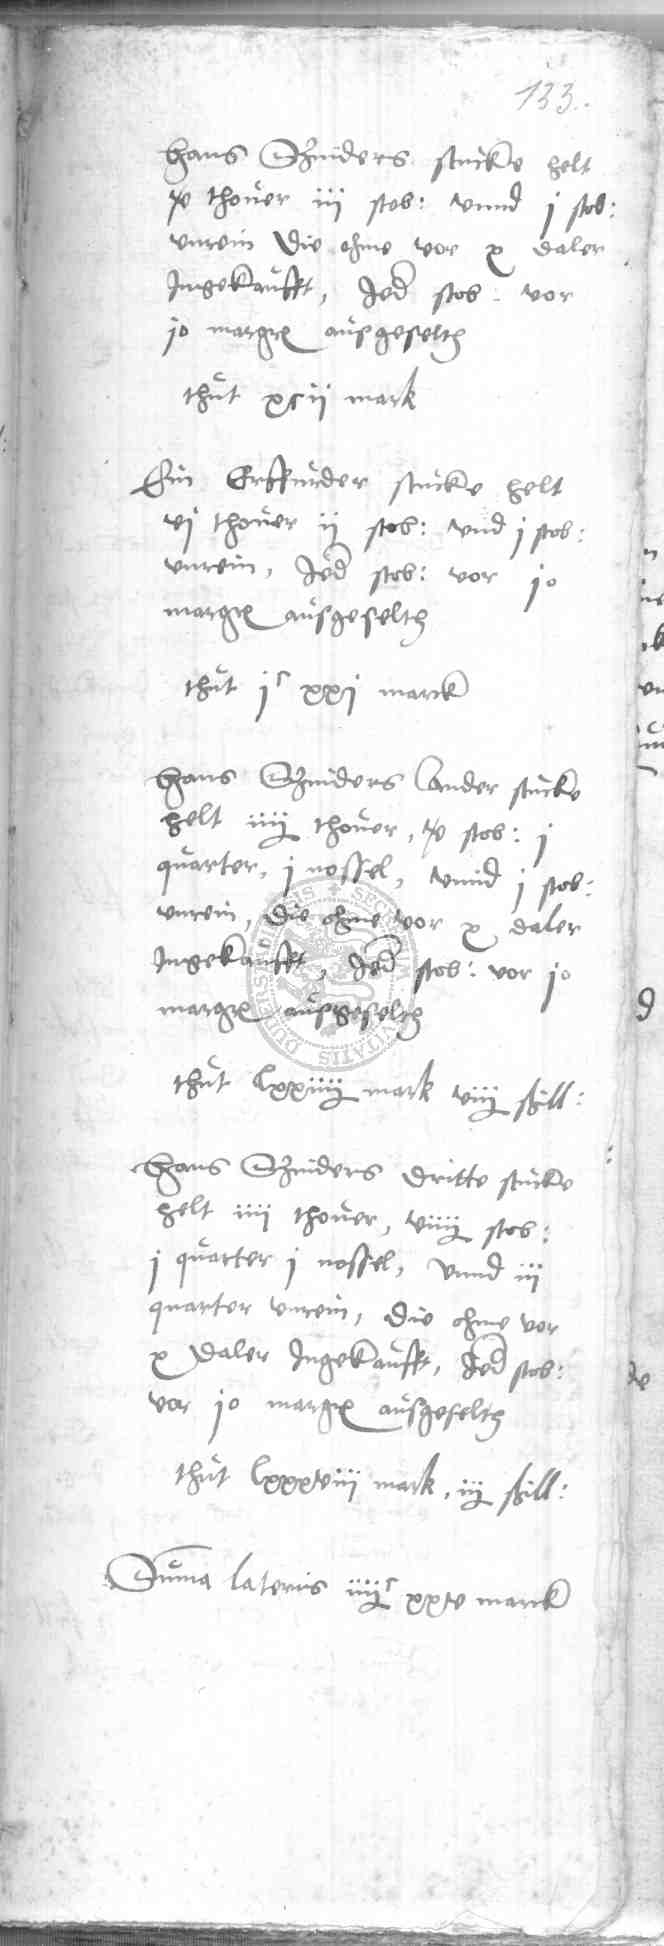 133.
Hans Schniders stucke helt
v thover iij stob: vnnd j stob:
vnrein die ohme vor x daler
Ingekaufft, Jed stob: vor
jo margk ausgeselth
thut xcij mark
Ein Erffurder stucke helt
vj thover ij stob: vnd j stob:
vnrein, Jed stob: vor jo
margk ausgeselth
thut jc xxj marck
Hans Schniders ander stucke
helt iiij thover, v stob: j
quarter, j nossel, vnnd j stob:
vnrein, die ohme vor x daler
Ingekaufft, Jed stob: vor jo
margk ausgeselth
thut lxxiiij mark viij schill:
Hans Schniders dritte stucke
helt iiij thover, viiij stob:
j quarter j nossel, vnnd iij
quarter vnrein, die ohme vor
x daler Ingekaufft, Jed stob:
vor jo margk ausgeselth
thut lxxxviij mark, iij schill:
Suma lateris iiijc xxv marck
SECRETUM CIVITATIS DUDERSTADENSIS